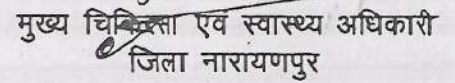 मुख्य चिकित्सा एवं स्वास्थ्य अधिकारी
जिला नारायणपुर